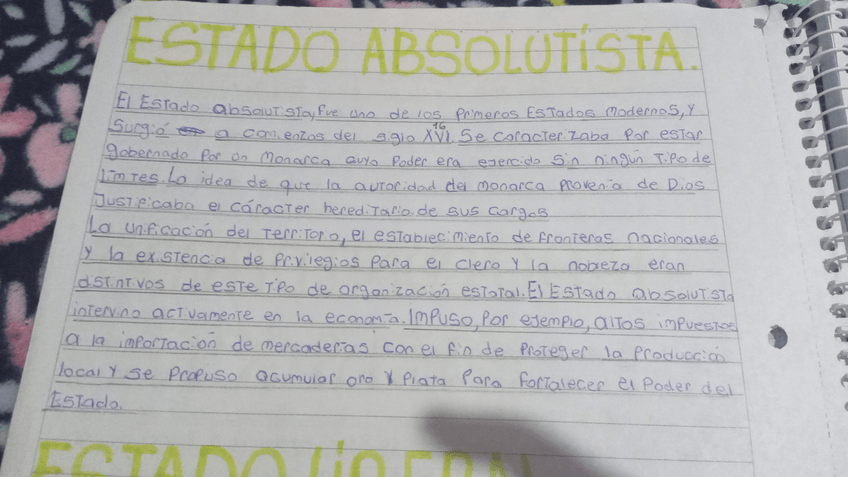 ESTADO ABSOLUTÍSTA.
El Estado absolutista, fue uno de los primeros Estados modernos, y
surgió a comienzos del siglo XVI. 16 Se caracterizaba por estar
gobernado por un monarca cuyo poder era ejercido sin ningún tipo de
limites. La idea de que la autoridad del monarca provenia de Dios
Justificaba el cáracter hereditario de sus cargos
La unificación del territorio, el establecimiento de fronteras nacionales
y la existencia de privilegios para el clero y la nobreza eran
distintivos de este tipo de organización estatal. El Estado absolutista
intervino activamente en la economía. Impuso, por ejemplo, altos impuestos
a la importación de mercaderías con el fin de proteger la producción
local y se propuso acumular oro y plata para fortalecer el poder del
Estado.
ESTADO LIBERAL